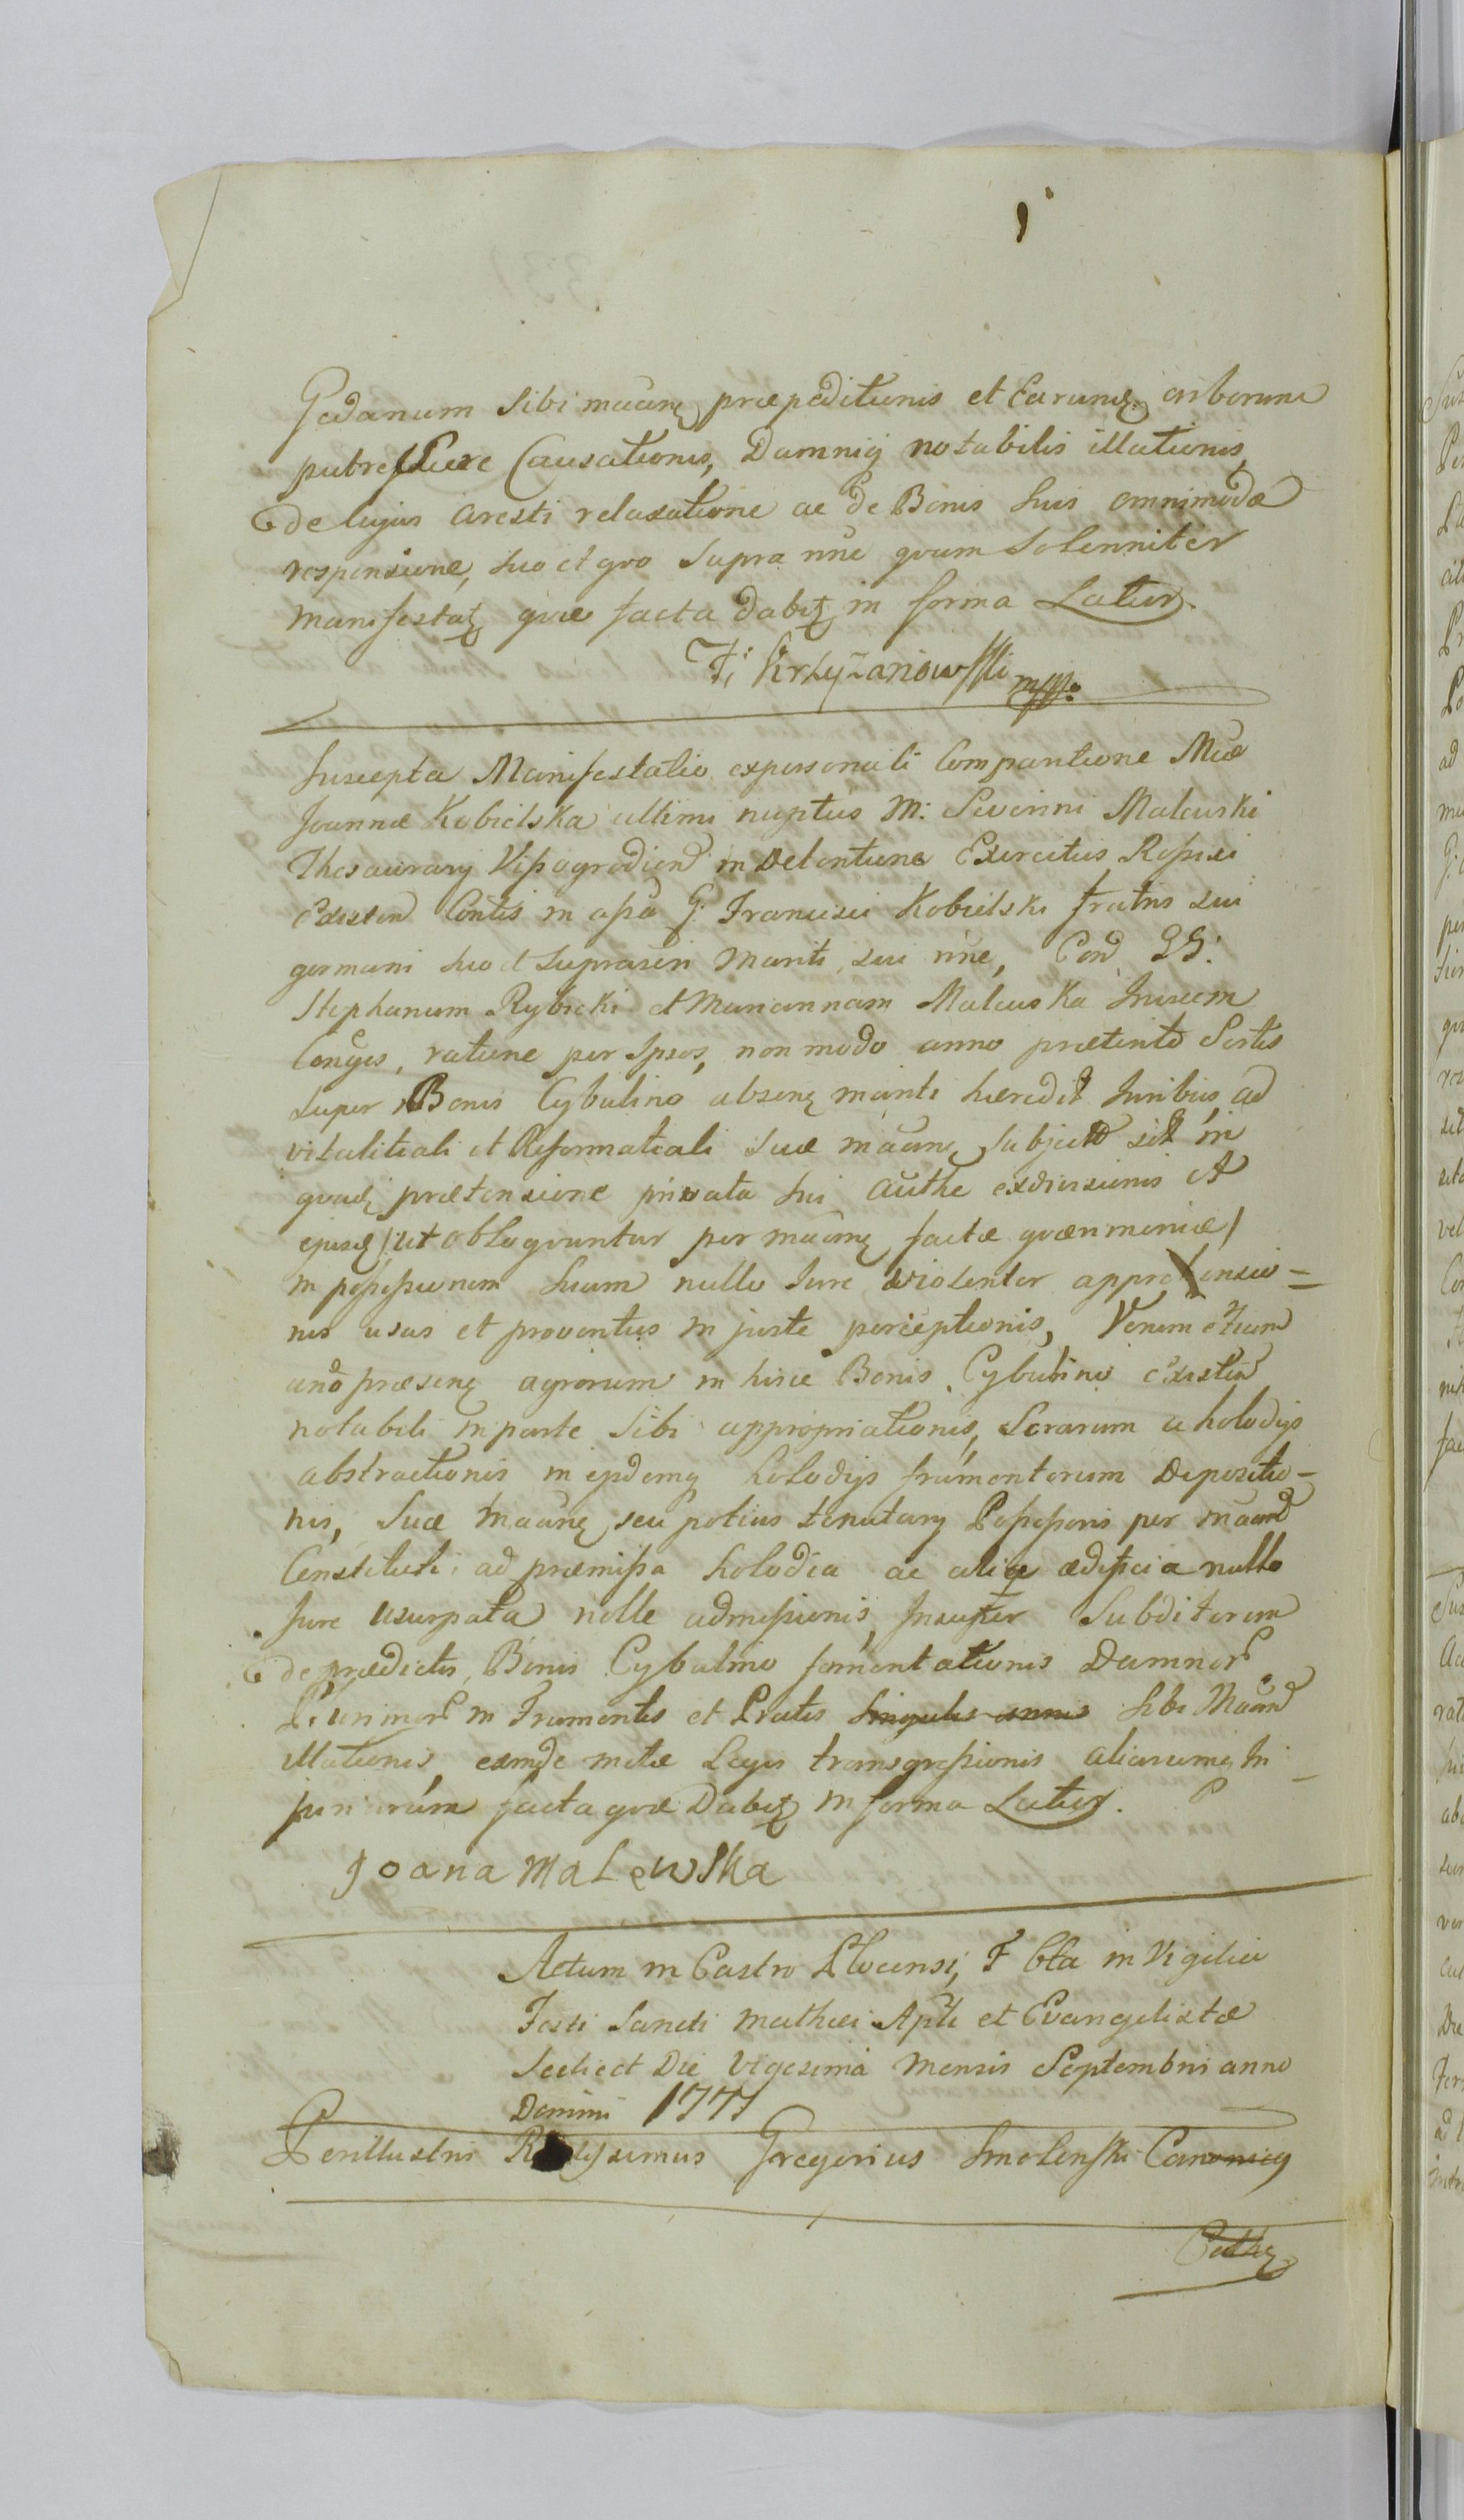 Gedanum sibi maãnq præpeditionis et earumq arborum
putrescere Causationis, Damniq notabilis illationis
de lujus aresti relaxatione ac de Bonis suis omnimoda
responsione, suo et quo supra nne quam solenniter
manifestatq quæ facta dabitq in forma Latius.
F: Krzyzanowski mpp:
Suscepta Manifestatio expersonali Comparitione Mæ
Joannæ Kobielska ultimi nuptus M: Severini Malewski
Thesaurarij Vissogrodien in Detentione Exercitus Rossici
existen Contis in assa G: Francisci Kobielski fratris sui
germani suo et supraseri mariti sui nne, Con GG:
Stephanum Rybicki et Mariannam Malewska Invicem
Conges, ratione per Ipsos, non modo anno prætento Sortis
super Bonis Cybulino absenq mariti hæredit Juribus ad
vitalitiali et Reformatiali suæ maãnq subject sit in
quadq prætensione privata sui authe exdivisionis et
ejusdq / ut obloquuntur per maãnq factæ quærimoniæ /
in possessionem suam nullo Jure violenter apprehensio=
nis usus et proventus injuste perceptionis, Verum etiam
ano præsenq agrorum in hisce Bonis Cybulino existen
notabili in parte sibi appropriationis, Serarum a holodijs
abstractionis in ejsdemq holodijs frumentorum Depositio-
nis, Suæ maãnq seu potius tenutarij Possessoris per maãn
Constituti ad præmissa holodia ac alia ædificia nullo
Jure usurpata nolle admissionis, Insuper Subditorum
de prædictis Bonis Cybulino fomentationis Damnor
Plurimor in Frumentis et Pratis singulis annis sibi Maãn
illationis, eamde metæ Legis transgressionis aliarumq In-
juriarum facta quæ Dabitq in forma Latius.
Joana MaLewska
Actum in Castro Plocensi, F bta in Vigilia
Festi Sancti Mathæi Apli et Evangelistæ
Scilicet Die Vigesima Mensis Septembris anno
Domini 1771
Perillustris Rssimus Gregorius Smolenski Canonicq